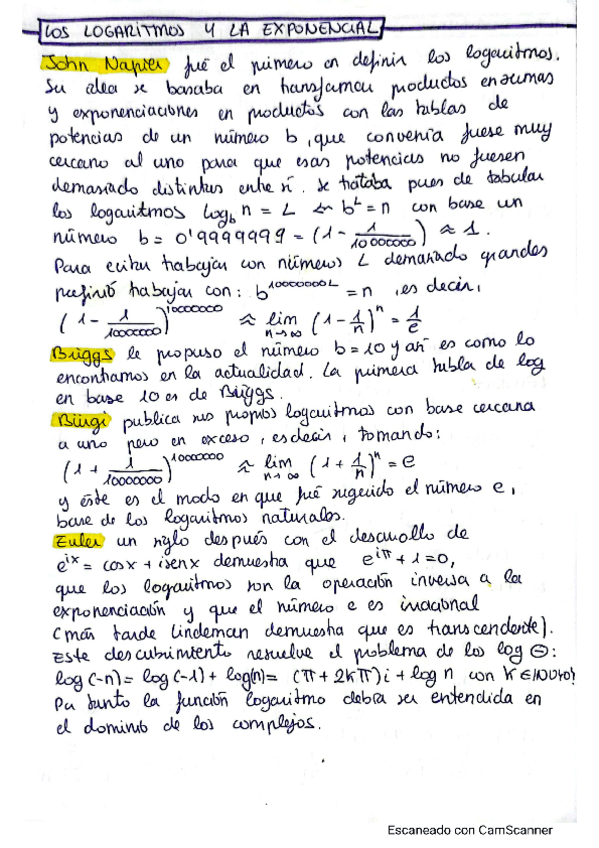 LOS LOGARITMOS Y LA EXPONENCIAL
John Napier fué el primero en definir los logaritmos.
Su idea se basaba en transformar productos en sumas
y exponenciaciones en productos con las tablas de
potencias de un número b, que convenía fuese muy
cercano al uno para que esas potencias no fuesen
demasiado distintas entre sí. Se trataba pues de tabular
los logaritmos log_b n = L ⟸ b^L = n con base un
número b = 0'9999999 = (1 - 1/10000000) ≈ 1.
Para evitar trabajar con números L demasiado grandes
prefirió trabajar con: b^10000000L = n, es decir,
(1 - 1/10000000)^10000000 ≈ lim n→∞ (1 - 1/n)^n = 1/e
Briggs le propuso el número b = 10 y así es como lo
encontramos en la actualidad. La primera tabla de log
en base 10 es de Briggs.
Bürgi publica sus propios logaritmos con base cercana
a uno pero en exceso, es decir, tomando:
(1 + 1/10000000)^10000000 ≈ lim n→∞ (1 + 1/n)^n = e
y éste es el modo en que fué sugerido el número e,
base de los logaritmos naturales.
Euler un siglo después con el desarrollo de
e^ix = cosx + isenx demuestra que e^iπ + 1 = 0,
que los logaritmos son la operación inversa a la
exponenciación y que el número e es irracional
(más tarde Lindeman demuestra que es transcendente).
Este descubrimiento resuelve el problema de los log ⊖:
log(-n) = log(-1) + log(n) = (π + 2kπ)i + log n con k ∈ ℕ∪{0}
Por tanto la función logaritmo debía ser entendida en
el dominio de los complejos.
Escaneado con CamScanner